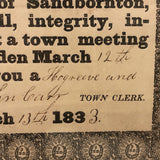 of Sandbornton,
il, integrity, in-
t a town meeting
den March 12th
you a Hogreeve and
Cate TOWN CLERK.
ch 13th 1833.